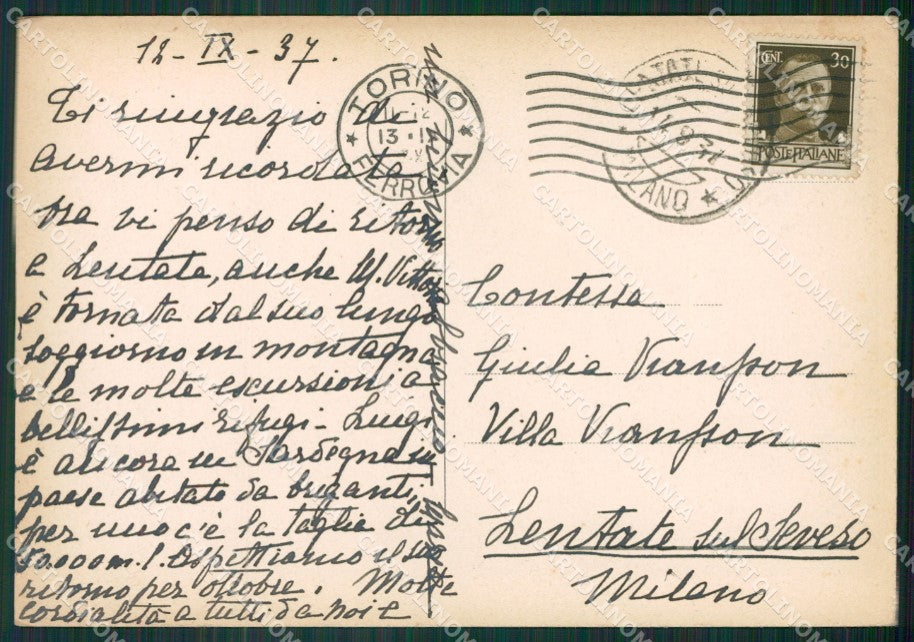 12-IX-37.
Ti ringrazio di
avermi ricordata
ora vi penso di ritorno
a Lentate, anche M. Vittoria
è tornata dal suo lungo
soggiorno in montagna
e le molte escursioni a
bellissimi rifugi - Luigi
è ancora in Sardegna in
paese abitato da briganti,
per uno c'è la taglia di
50.000 m. l. Aspettiamo il suo
ritorno per ottobre. Molte
cordialità a tutti da noi e
TORINO
13 · IX
FERROVIA
LENTATE
14.9.37
MILANO
CENT. 30
POSTE ITALIANE
Contessa
Giulia
Villa
Lentate sul Seveso
Milano
CARTOLINOMANIA